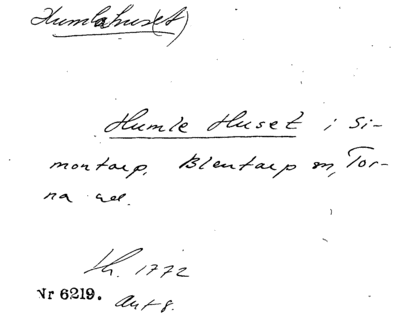 Humlahus(et)
Humle Huset i Si-
montorp, Blentarp sn, Tor-
na hd.
Lh. 1772
Nr 6219. Ant 8.